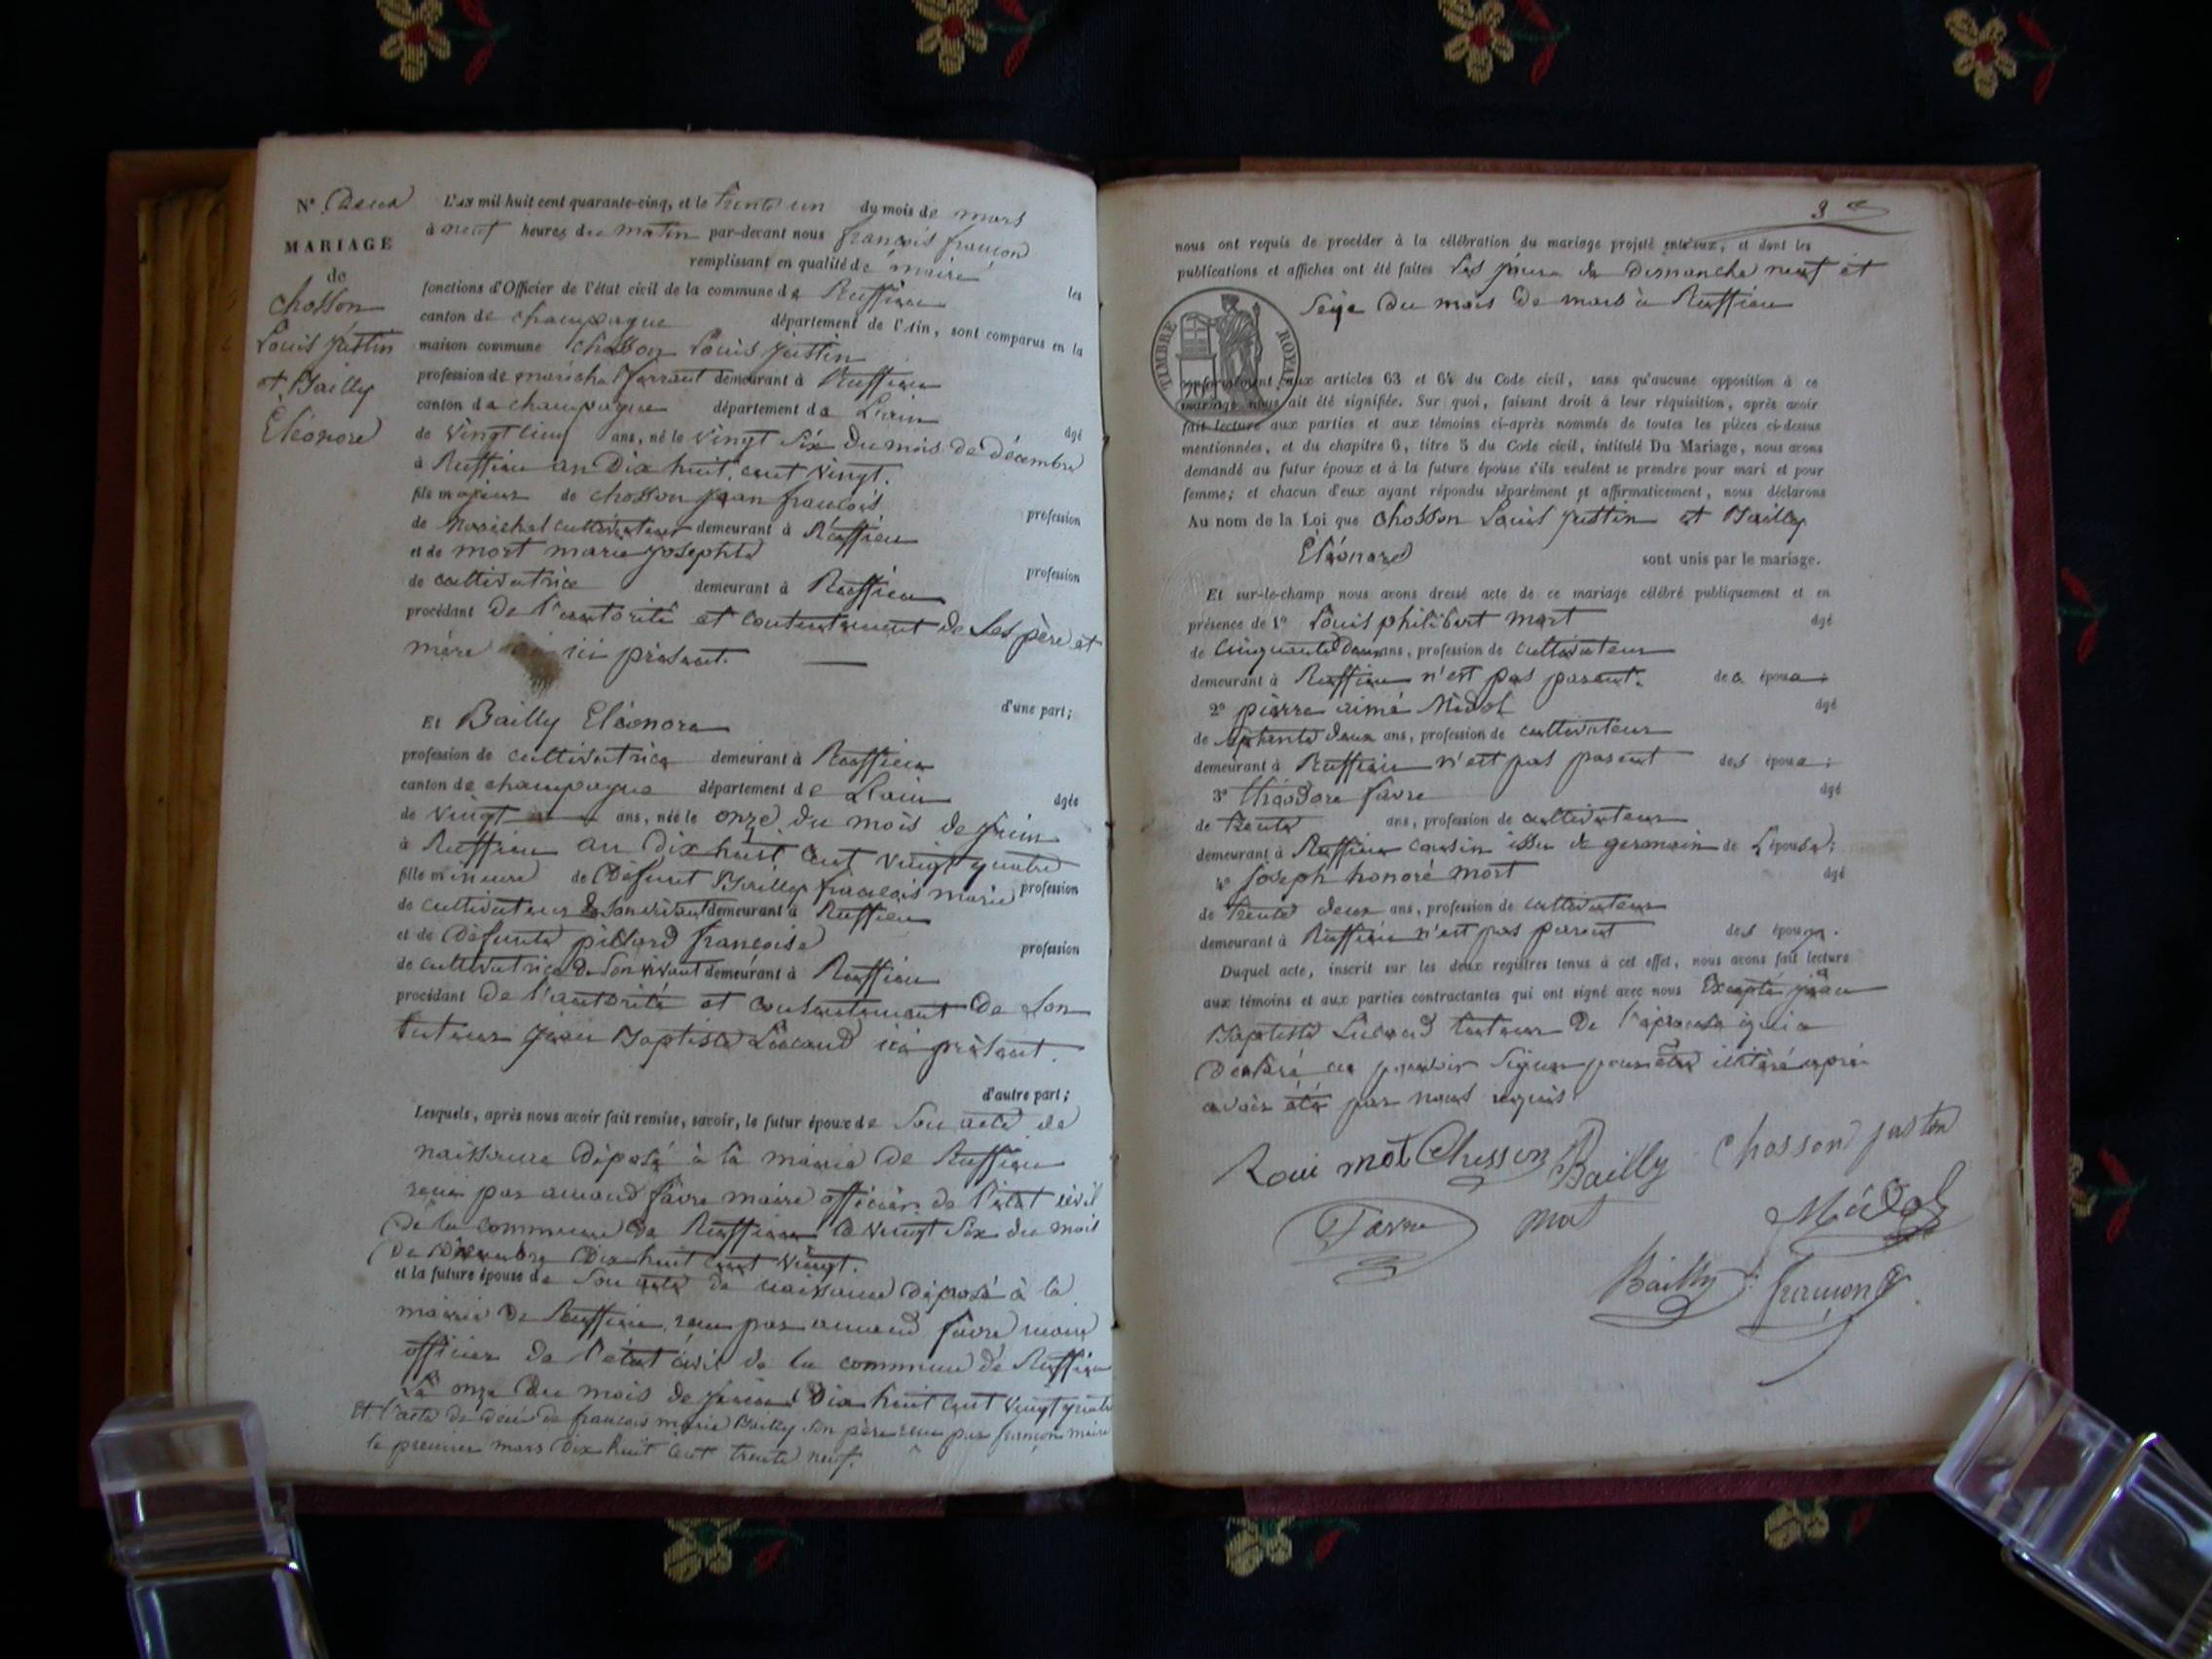 N° Deux
MARIAGE
de
chosson
Louis justin
et Bailly
Eléonore
L'an mil huit cent quarante-cinq, et le trente un du mois de mars
à neuf heures du matin par-devant nous françois
remplissant en qualité de maire les
fonctions d'Officier de l'état civil de la commune de Ruffieu
canton de champagne département de l'Ain, sont comparus en la
maison commune chosson Louis justin
profession de marichal ferrant demeurant à Ruffieu
canton de champagne département de Lain âgé
de vingt ans, né le vingt six du mois de décembre
à Ruffieu an Dix huit cent vingt.
fils majeur de chosson jean francois profession
de marichal cultivateur demeurant à Ruffieu
et de mort marie josephte profession
de cultivatrice demeurant à Ruffieu
procédant de l'autorité et consentement de ses père et
mère ici présent.
d'une part;
Et Bailly Eléonore
profession de cultivatrice demeurant à Ruffieu
canton de champagne département de Lain âgée
de vingt ans, née le onze du mois de juin
à Ruffieu an Dix huit cent vingt quatre
fille mineure de Défunt Bailly francois marie profession
de cultivateur de son vivant demeurant à Ruffieu
et de Défunte francoise profession
de cultivatrice de son vivant demeurant à Ruffieu
procédant de l'autorité et consentement de son
tuteur jean Baptiste ici présent.
d'autre part;
Lesquels, après nous avoir fait remise, savoir, le futur époux de son acte de
naissance déposé à la mairie de Ruffieu
reçu par amand favre maire officier de l'état civil
de la commune de Ruffieu le vingt six du mois
de Décembre Dix huit cent vingt.
et la future épouse de son acte de naissance déposé à la
mairie de Ruffieu reçu par amand favre maire
officier de l'état civil de la commune de Ruffieu
Le onze du mois de juin Dix huit cent vingt quatre
Et l'acte de décè de francois marie Bailly son père reçu par maire
le premier mars Dix huit cent trente neuf.
3
nous ont requis de procéder à la célébration du mariage projeté entr'eux, et dont les
publications et affiches ont été faites les jours de Dimanche neuf et
seize du mois de mars à Ruffieu
TIMBRE ROYAL
conformément aux articles 63 et 64 du Code civil, sans qu'aucune opposition à ce
mariage nous ait été signifiée. Sur quoi, faisant droit à leur réquisition, après avoir
fait lecture aux parties et aux témoins ci-après nommés de toutes les pièces ci-dessus
mentionnées, et du chapitre 6, titre 5 du Code civil, intitulé Du Mariage, nous avons
demandé au futur époux et à la future épouse s'ils veulent se prendre pour mari et pour
femme; et chacun d'eux ayant répondu séparément et affirmativement, nous déclarons
Au nom de la Loi que chosson Louis justin et Bailly
Eléonore sont unis par le mariage.
Et sur-le-champ nous avons dressé acte de ce mariage célébré publiquement et en
présence de 1° Louis philibert mort âgé
de cinquante Deux ans, profession de cultivateur
demeurant à Ruffieu n'est pas parent. des époux;
2° pierre aimé Médol âgé
de septente deux ans, profession de cultivateur
demeurant à Ruffieu n'est pas parent des époux;
3° théodore favre âgé
de trente ans, profession de cultivateur
demeurant à Ruffieu cousin issu de germain de L'épouse;
4° joseph honoré mort âgé
de trente deux ans, profession de cultivateur
demeurant à Ruffieu n'est pas parent des époux.
Duquel acte, inscrit sur les deux registres tenus à cet effet, nous avons fait lecture
aux témoins et aux parties contractantes qui ont signé avec nous Excepté jean
Baptiste tuteur de l'épouse qui a
Déclaré ne pouvoir signer pour être après
avoir été par nous requis.
mot Chosson Bailly chosson justin
Favre mot Médol
Bailly